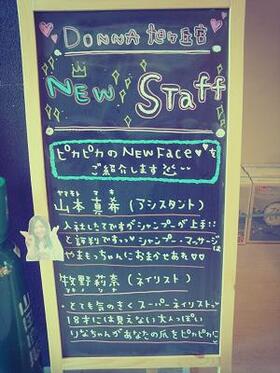 DONNA 旭ヶ丘店
NEW Staff
ピカピカのNEW Faceを
ご紹介します
ヤマモト マキ
山本 真希(アシスタント)
入社したてですがシャンプーが上手!!
と評判ですっ シャンプー・マッサージは
やまもっちゃんにおまかせあれ
牧野莉奈(ネイリスト)
マキノ リナ
とても気のきくスーパーネイリスト。
18才には見えない大人っぽい
りなちゃんがあなたの爪をピカピカに